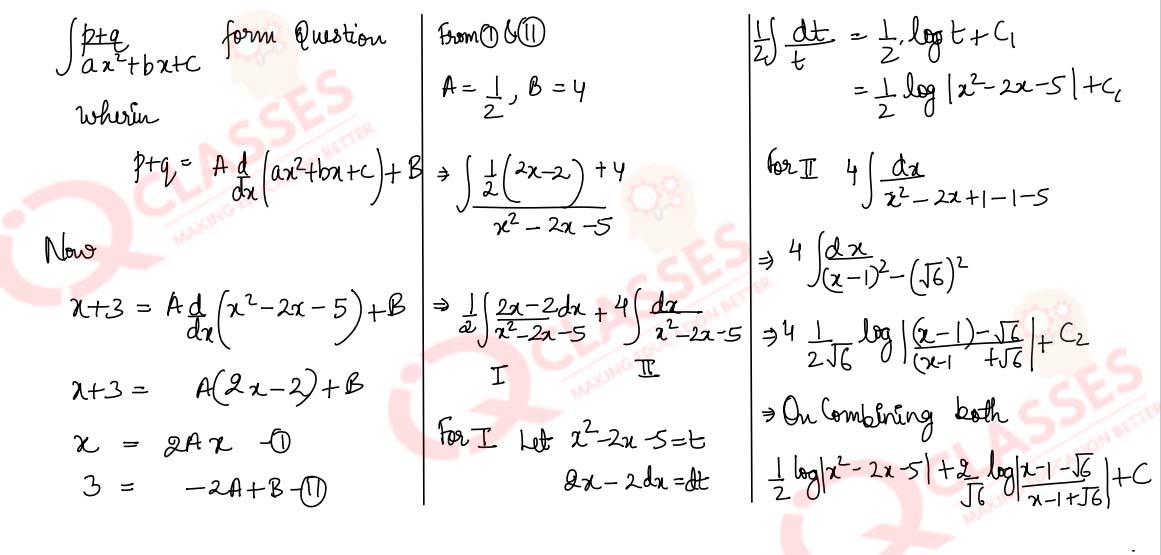 ∫ p+q / ax²+bx+c form Question
wherin
p+q = A d/dx (ax²+bx+c) + B
Now
x+3 = A d/dx (x²-2x-5) + B
x+3 = A(2x-2)+B
x = 2Ax -Ⓘ
3 = -2A+B-Ⓘ Ⓘ
From Ⓘ & ⓘⓘ
A = 1/2, B = 4
⇒ ∫ 1/2 (2x-2) + 4 / x² - 2x - 5
⇒ 1/2 ∫ 2x-2dx / x²-2x-5 + 4 ∫ dx / x²-2x-5
I II
For I Let x²-2x-5=t
2x-2dx=dt
1/2 ∫ dt/t = 1/2 . log t + C₁
= 1/2 log |x²-2x-5| + C₁
For II 4 ∫ dx / x²-2x+1-1-5
⇒ 4 ∫ dx / (x-1)²-(√6)²
⇒ 4 1/2√6 log |(x-1)-√6 / (x-1 +√6| + C₂
⇒ On Combining both
1/2 log|x²-2x-5| + 2/√6 log|x-1-√6 / x-1+√6| + C
Q CLASSES
MAKING EDUCATION BETTER